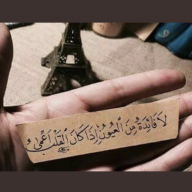 لا فائدة من العيون إذا كان القلب أعمى